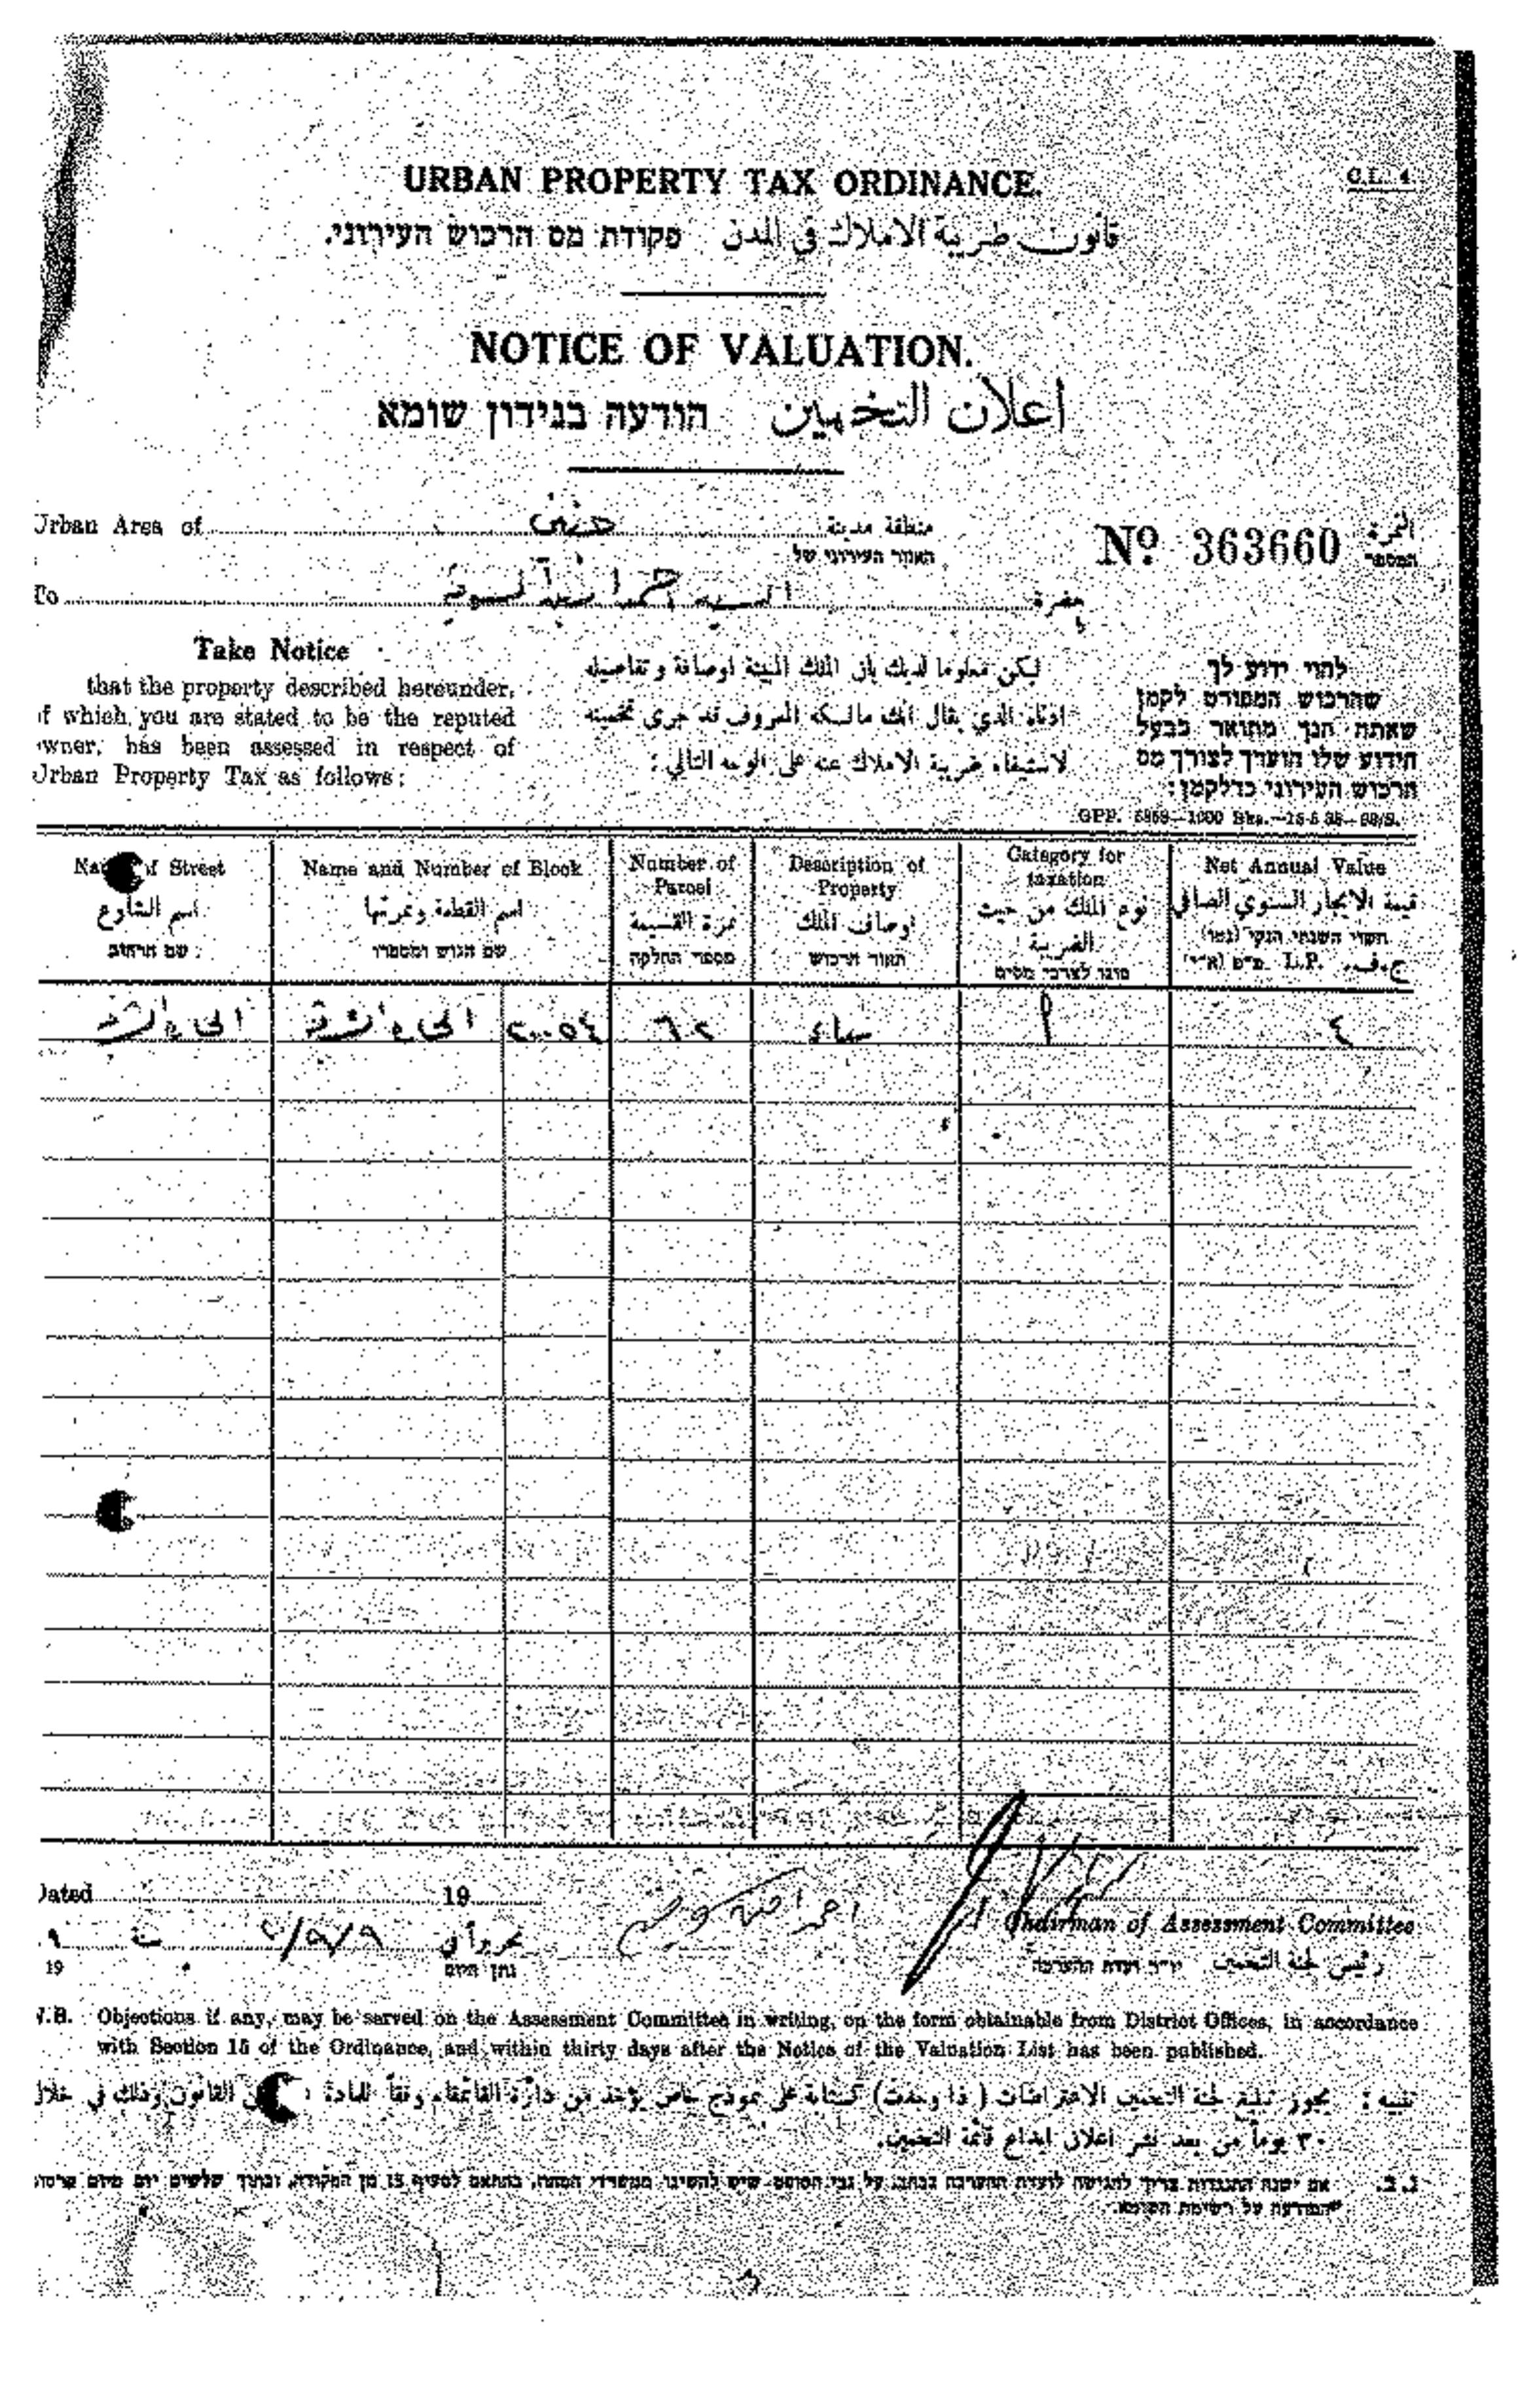 C.L. 4
URBAN PROPERTY TAX ORDINANCE.
قانون ضريبة الاملاك في المدن פקודת מס הרכוש העירוני.
NOTICE OF VALUATION.
اعلان التخمين הודעה בנידון שומא
Urban Area of جنين منطقة مدينة
האזור העירוני של
No 363660 النمرة
המספר
To السيد حضرة
Take Notice
that the property described hereunder,
of which you are stated to be the reputed
owner, has been assessed in respect of
Urban Property Tax as follows:
ليكن معلوما لديك بان الملك المبينة اوصافه وتفاصيله
ادناه الذي يقال انك مالكه المعروف قد جرى تخمينه
لاستيفاء ضريبة الاملاك عنه على الوجه التالي:
להוי ידוע לך
שהרכוש המפורט לקמן
שאתה הנך מתואר כבעל
הידוע שלו הוערך לצורך מס
הרכוש העירוני כדלקמן:
Name of Street
اسم الشارع
שם הרחוב
Name and Number of Block
اسم القطعة ونمرتها
שם הגוש ומספרו
Number of Parcel
نمرة القسيمة
מספר החלקה
Description of Property
اوصاف الملك
תאור הרכוש
Category for taxation
نوع الملك من حيث الضريبة
סוגו לצרכי מסים
Net Annual Value
قيمة الايجار السنوي الصافي
השווי השנתי הנקי (נטו)
L.P. ج.ف.
الحارة الشرقية الحارة الشرقية ٢٠٠٥٤ ٦٢ أ ٤
Dated 19
تحريراً في سنة
נתן היום 19
Chairman of Assessment Committee
رئيس لجنة التخمين יו״ר ועדת ההערכה
N.B. Objections if any, may be served on the Assessment Committee in writing, on the form obtainable from District Offices, in accordance
with Section 15 of the Ordinance, and within thirty days after the Notice of the Valuation List has been published.
تنبيه: يجوز تبليغ لجنة التخمين الاعتراضات (اذا وجدت) كتابة على نموذج خاص يؤخذ من دائرة القائمقام وفقاً للمادة من القانون وذلك في خلال
٣٠ يوماً من بعد نشر اعلان ايداع قائمة التخمين.
נ.ב. אם ישנה התנגדות צריך להגישה לועדת ההערכה בכתב, על גבי הטופס שיש להשיגו ממשרדי המחוז, בהתאם לסעיף 15 מן הפקודה, ובתוך שלשים יום מיום פרסום
המודעה על רשימת השומא.